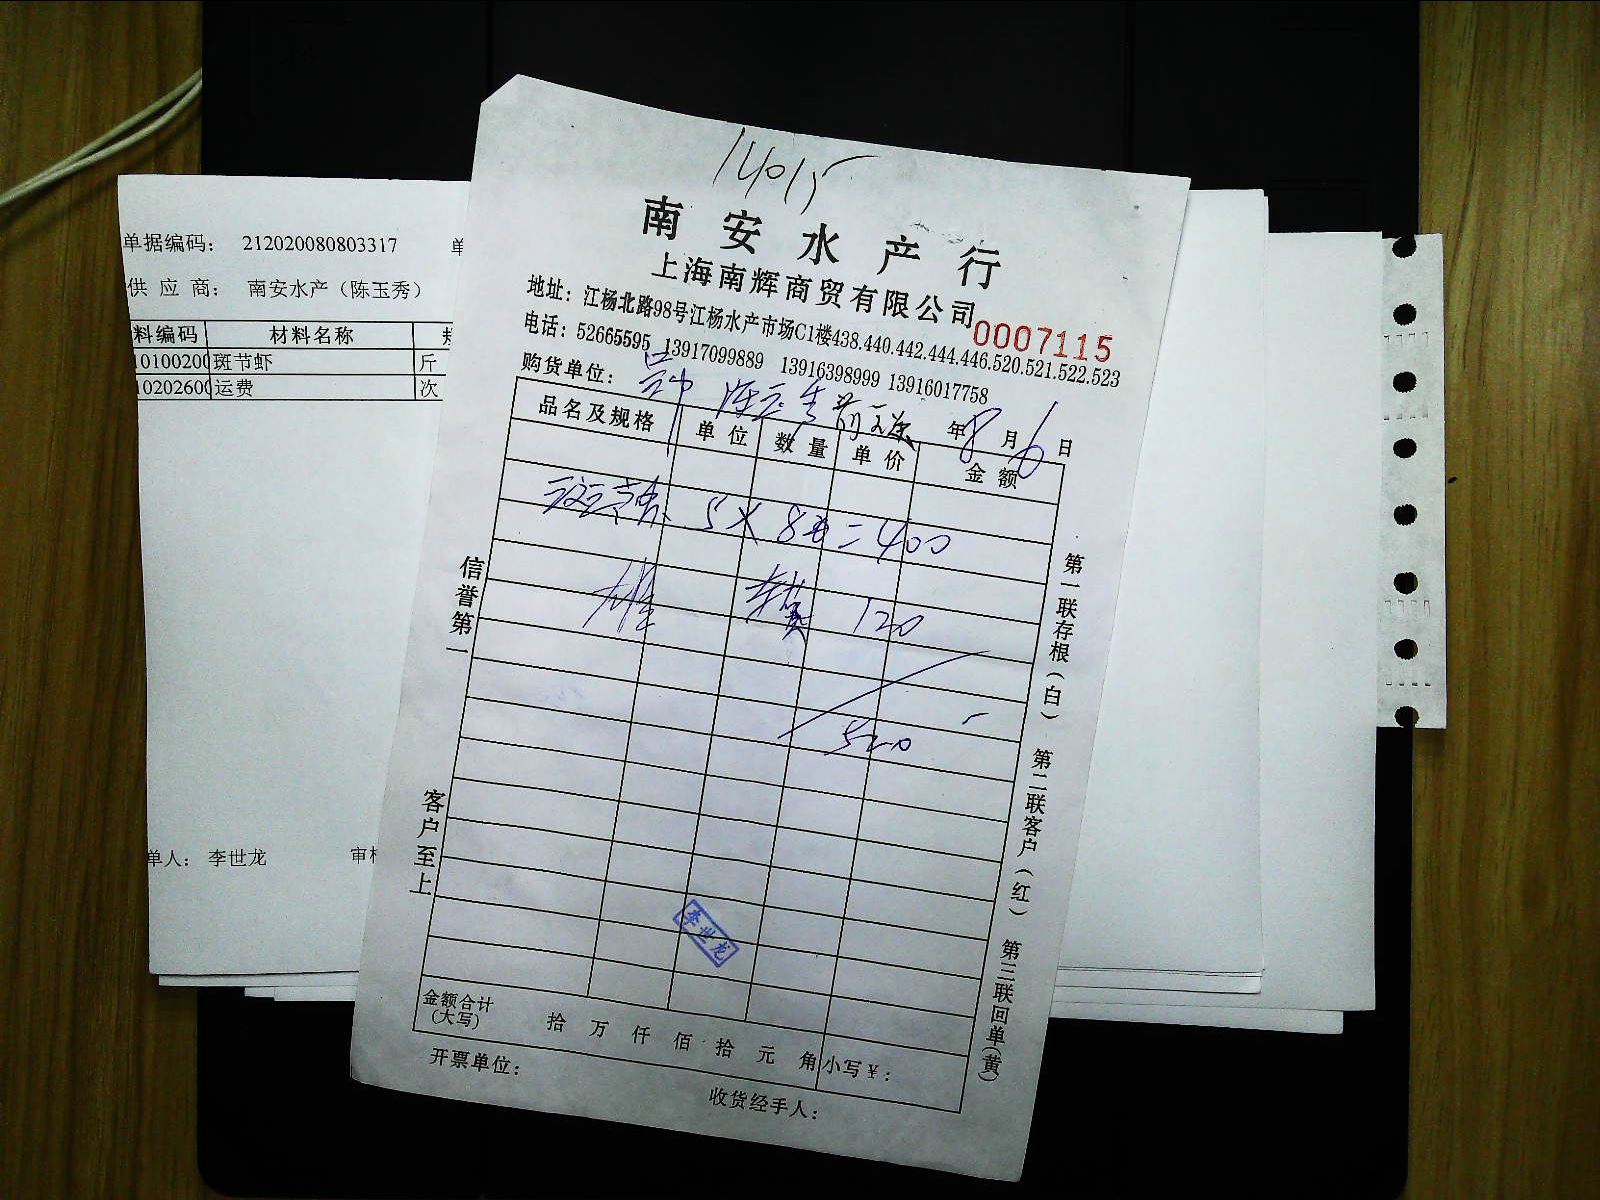 单据编码： 212020080803317 单
供 应 商： 南安水产（陈玉秀）
料编码 材料名称 规
10100200 斑节虾 斤
10202600 运费 次
单人： 李世龙 审核
14015
南安水产行
上海南辉商贸有限公司
0007115
地址：江杨北路98号江杨水产市场C1楼438.440.442.444.446.520.521.522.523
电话：52665595 13917099889 13916398999 13916017758
购货单位： 陈玉秀 年8月6日
品名及规格 单位 数量 单价 金额
5×80=400
120
520
李世龙
金额合计(大写) 拾 万 仟 佰 拾 元 角 小写￥：
开票单位：
收货经手人：
信誉第一
客户至上
第一联存根（白） 第二联客户（红） 第三联回单（黄）